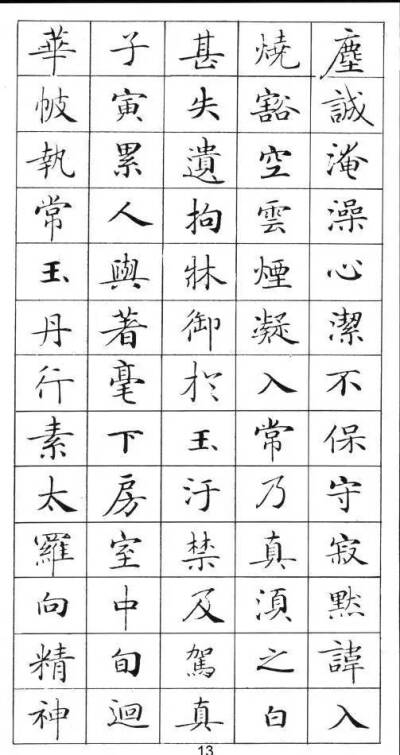 塵誠淹澡心潔不保守寂黙諱入
燒豁空雲煙凝入常乃真湏之白
甚失遺拘牀御於玉汙禁及駕真
子寅累人與著毫下房室中旬迴
華帔執常玉丹行素太羅向精神
13